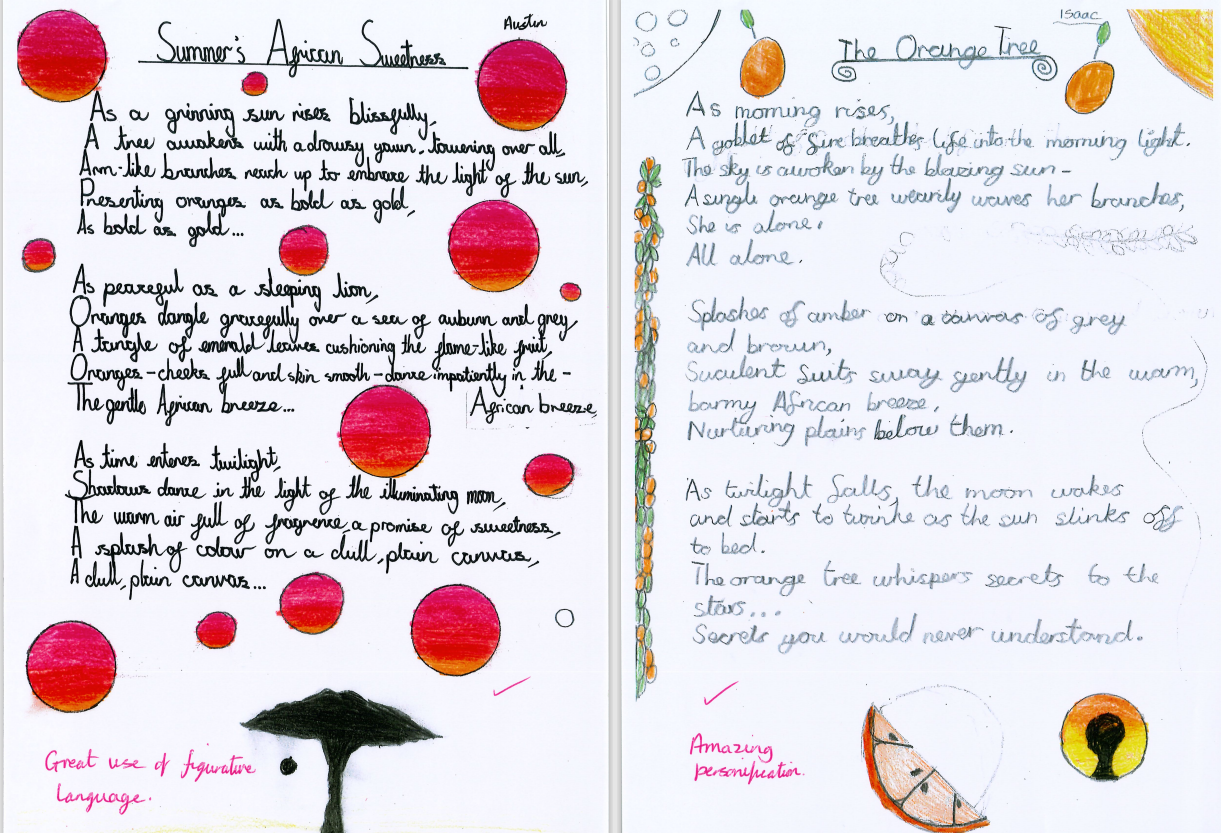 Austin
Summer's African Sweetness
As a grinning sun rises blissfully,
A tree awakens with a drowsy yawn, towering over all,
Arm-like branches reach up to embrace the light of the sun,
Presenting oranges as bold as gold,
As bold as gold...
As peaceful as a sleeping lion,
Oranges dangle gracefully over a sea of auburn and grey,
A tangle of emerald leaves cushioning the flame-like fruit,
Oranges - cheeks full and skin smooth - dance impatiently in the -
The gentle African breeze...
African breeze,
As time enteres twilight,
Shadows dance in the light of the illuminating moon,
The warm air full of fragrence, a promise of sweetness,
A splash of colour on a dull, plain canvas,
A dull, plain canvas...
Great use of figurative
language.
Isaac
The Orange Tree
As morning rises,
A goblet of fire breathes life into the morning light.
The sky is awoken by the blazing sun -
A single orange tree wearily waves her branches,
She is alone.
All alone.
Splashes of amber on a canvas of grey
and brown,
Succulent fruits sway gently in the warm,
barmy African breeze,
Nurturing plains below them.
As twilight falls, the moon wakes
and starts to twinkle as the sun slinks off
to bed.
The orange tree whispers secrets to the
stars...
Secrets you would never understand.
Amazing
personification.